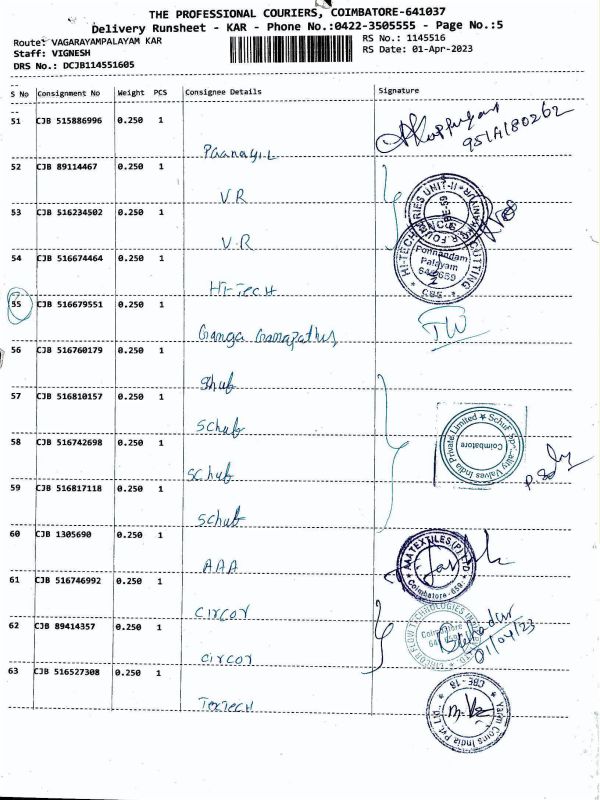 THE PROFESSIONAL COURIERS, COIMBATORE-641037
Delivery Runsheet - KAR - Phone No.:0422-3505555 - Page No.:5
Route: VAGARAYAMPALAYAM KAR
RS No.: 1145516
Staff: VIGNESH
RS Date: 01-Apr-2023
DRS No.: DCJB114551605
S No Consignment No Weight PCS Consignee Details Signature
51 CJB 515886996 0.250 1
52 CJB 89114467 0.250 1
VR
53 CJB 516234502 0.250 1
V.R
54 CJB 516674464 0.250 1
Hi-Tech
55 CJB 516679551 0.250 1
Ganga
56 CJB 516760179 0.250 1
Shuf
57 CJB 516810157 0.250 1
Schuf
58 CJB 516742698 0.250 1
Schuf
59 CJB 516817118 0.250 1
Schuf
60 CJB 1305690 0.250 1
AAA
61 CJB 516746992 0.250 1
Circor
62 CJB 89414357 0.250 1
Circor
63 CJB 516527308 0.250 1
TexTech
Ponnandam
Palayam
Coimbatore
AAA TEXTILES (P) LTD
Coimbatore
01/04/23
Yarn Cones India Pvt. Ltd
CBE - 18